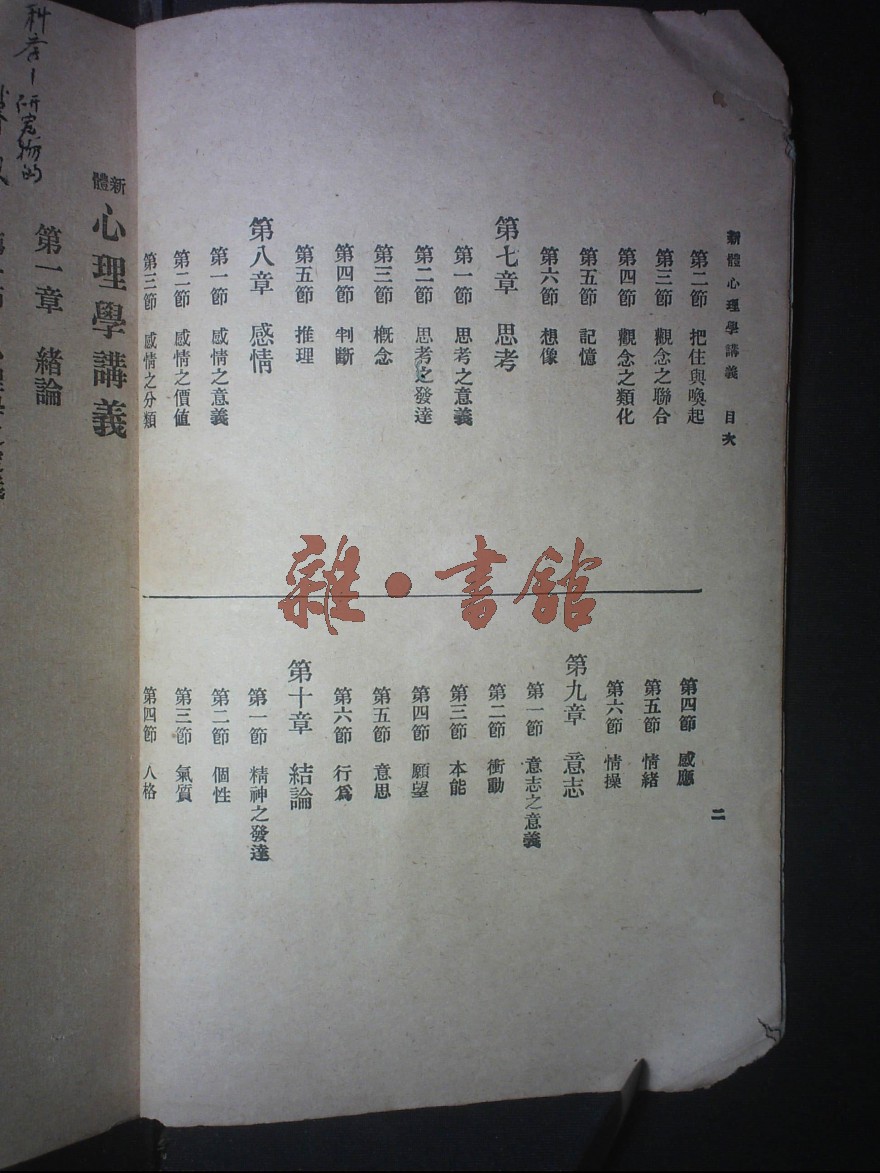 新體心理學講義 目次
第二節 把住與喚起
第三節 觀念之聯合
第四節 觀念之類化
第五節 記憶
第六節 想像
第七章 思考
第一節 思考之意義
第二節 思考之發達
第三節 概念
第四節 判斷
第五節 推理
第八章 感情
第一節 感情之意義
第二節 感情之價値
第三節 感情之分類
第四節 感應
第五節 情緒
第六節 情操
第九章 意志
第一節 意志之意義
第二節 衝動
第三節 本能
第四節 願望
第五節 意思
第六節 行爲
第十章 結論
第一節 精神之發達
第二節 個性
第三節 氣質
第四節 人格
二
雜・書館
新體心理學講義
第一章 緒論
研究物的